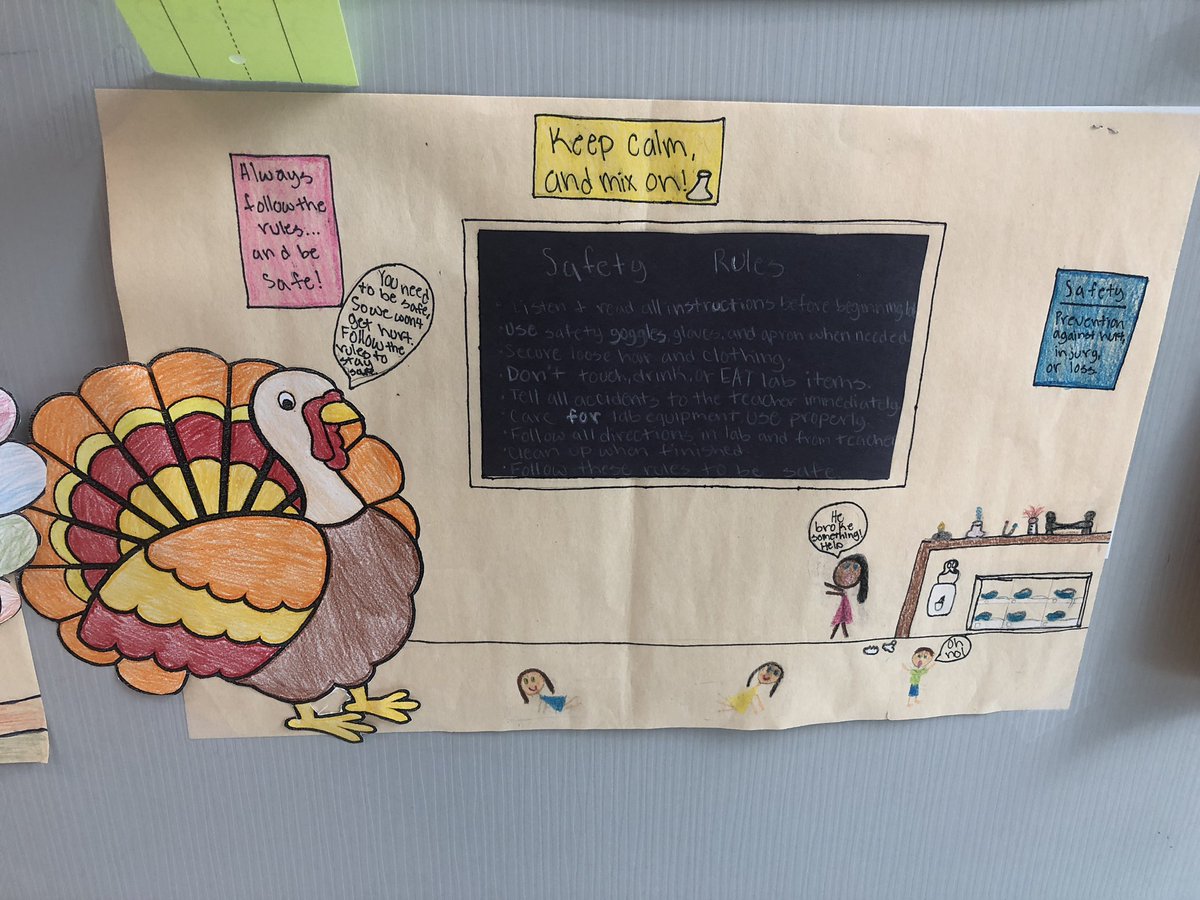 Keep calm,
and mix on!
Always
follow the
rules...
and be
safe!
You need
to be safe,
So we won't
get hurt.
Follow the
rules to
stay
safe.
Safety Rules
• Listen + read all instructions before beginning
• Use safety goggles, gloves, and apron when needed.
• Secure loose hair and clothing
• Don't touch, drink, or EAT lab items.
• Tell all accidents to the teacher immediately
• Care for lab equipment, use properly
• Follow all directions in lab and from teacher
• Clean up when finished
• Follow these rules to be safe
Safety
Prevention
against hurt,
injury,
or loss.
He
broke
something!
Help
Oh
no!